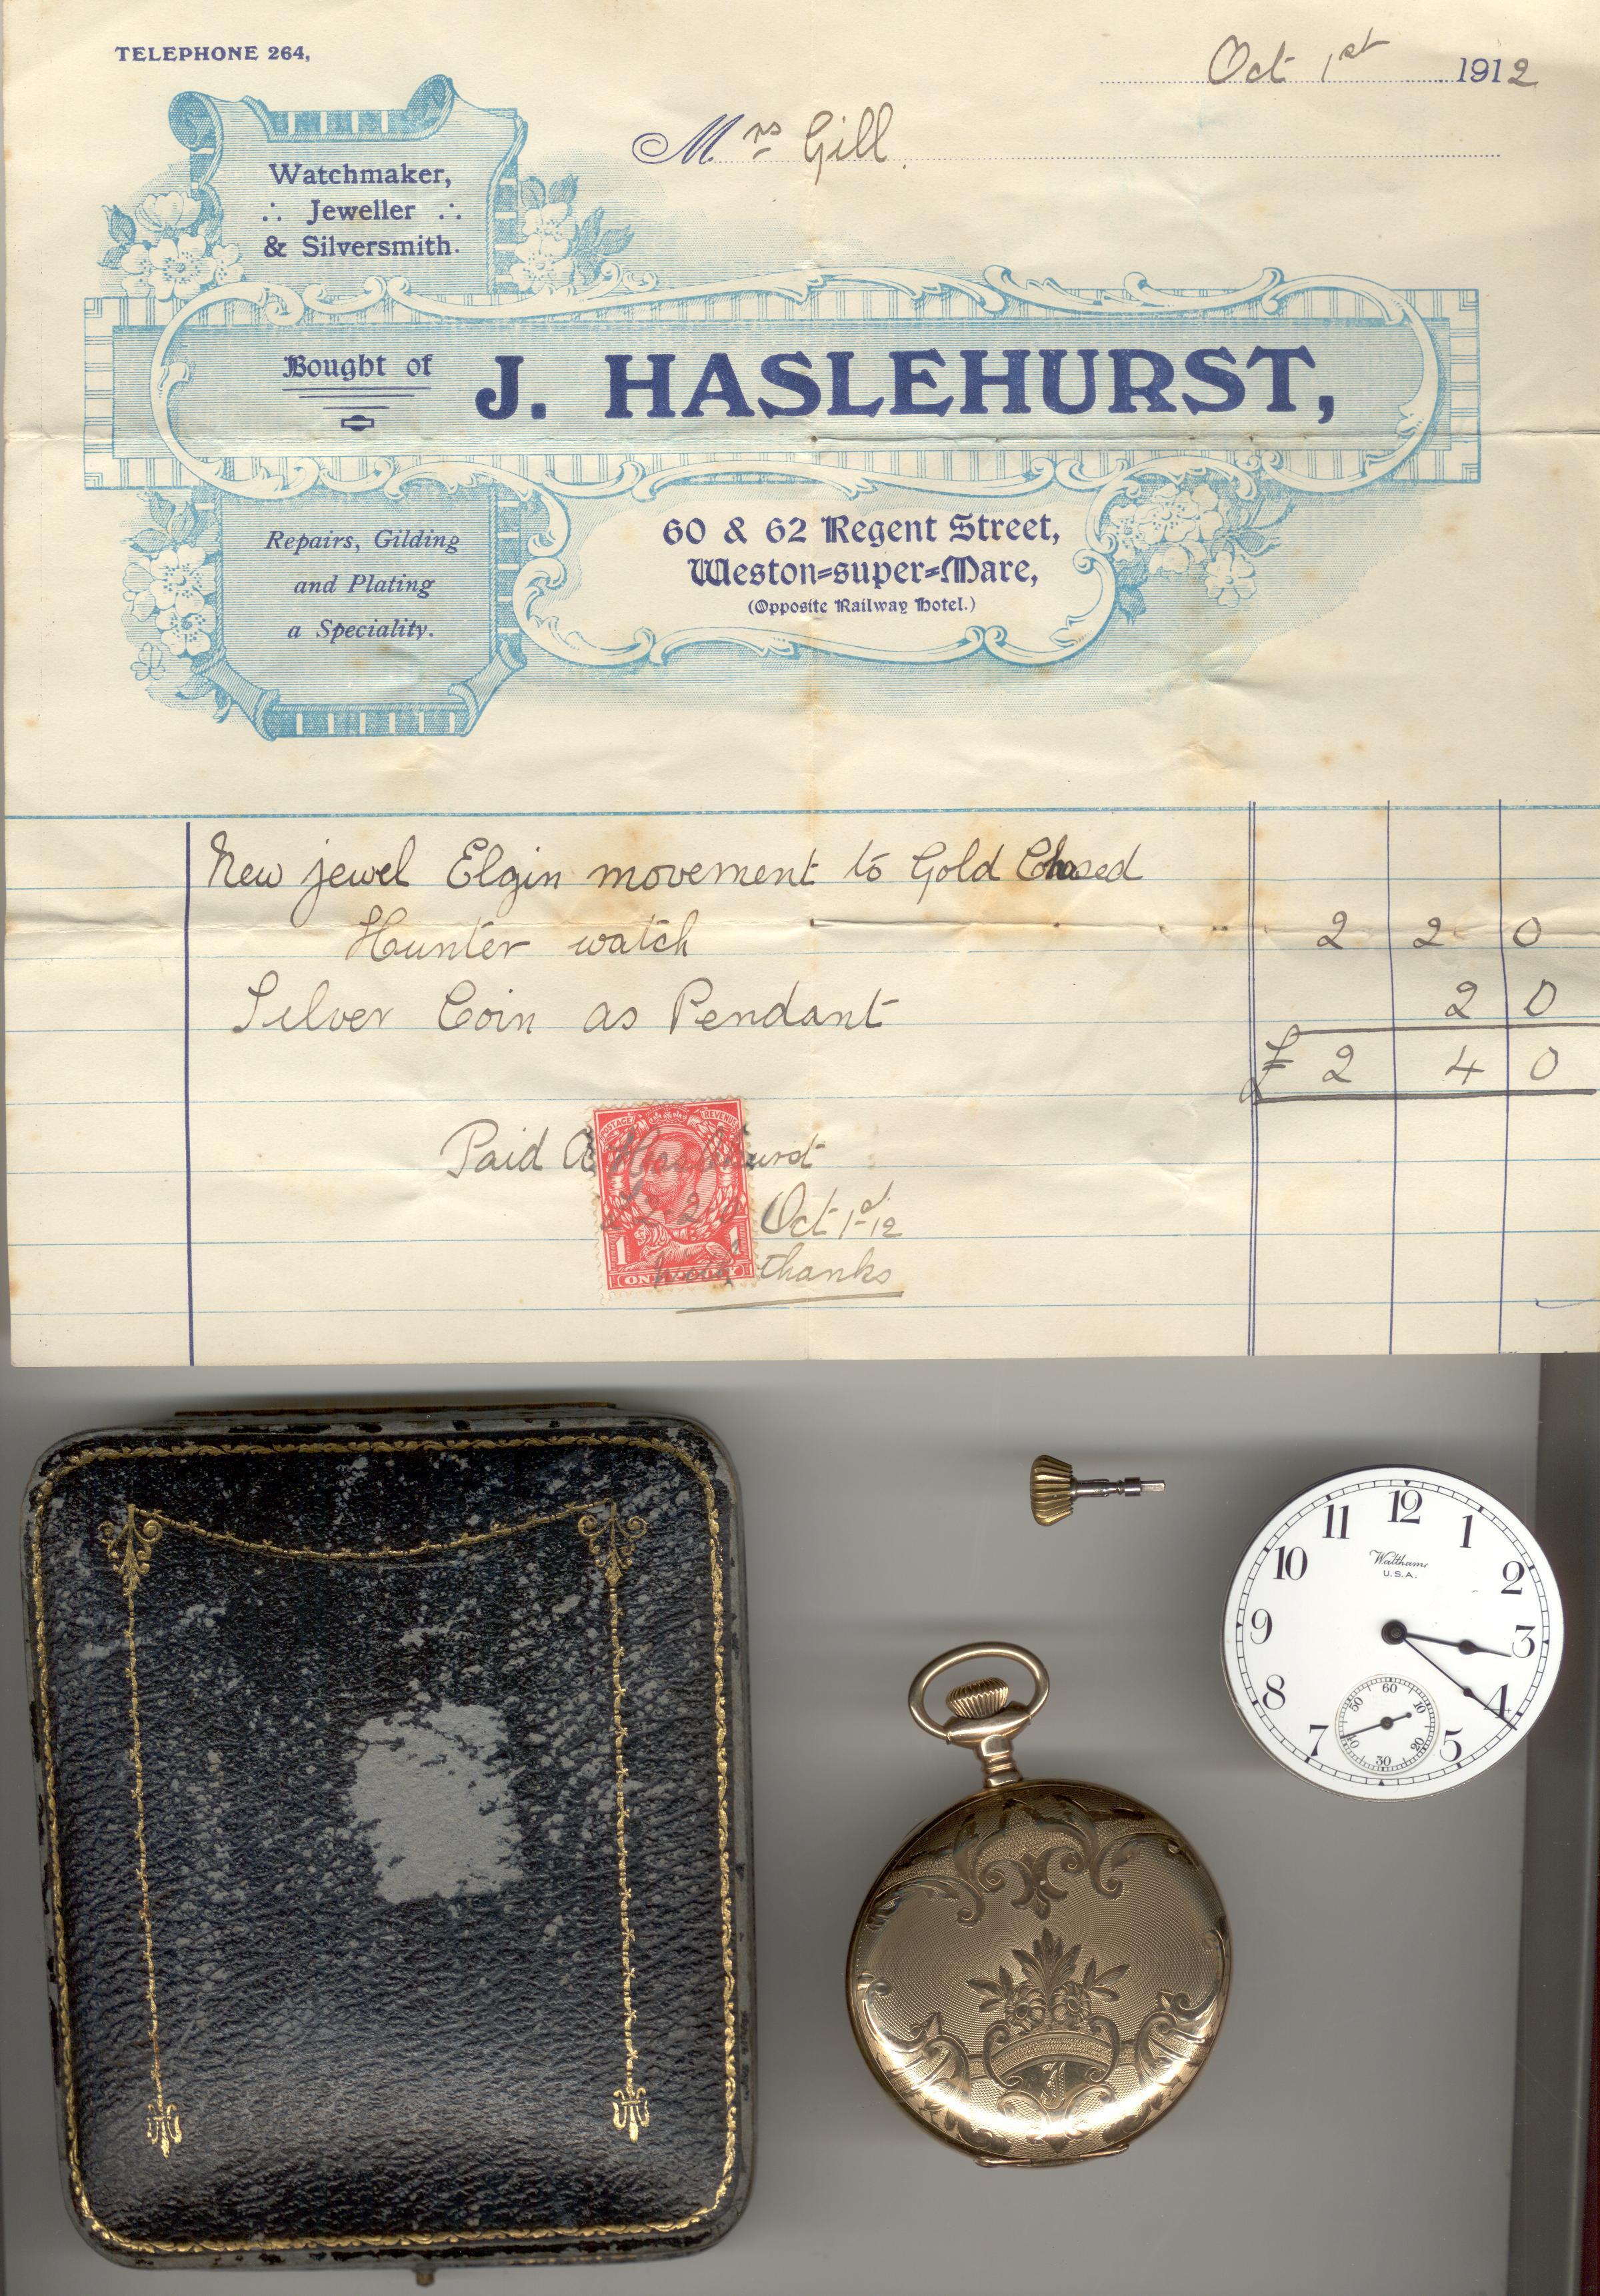 TELEPHONE 264,
Oct 1st 1912
Mrs Gill.
Watchmaker,
∴ Jeweller ∴
& Silversmith.
Bought of J. HASLEHURST,
Repairs, Gilding
and Plating
a Speciality.
60 & 62 Regent Street,
Weston-super-Mare,
(Opposite Railway Hotel.)
New jewel Elgin movement to Gold Chased
Hunter watch 2 2 0
Silver Coin as Pendant 2 0
£ 2 4 0
POSTAGE REVENUE
Paid A Haslehurst
Oct 1st 12
With thanks
1 1
ONE
12
11 1
10 2
Waltham
U.S.A.
9 3
8 4
7 5
60
50 10
40 20
30